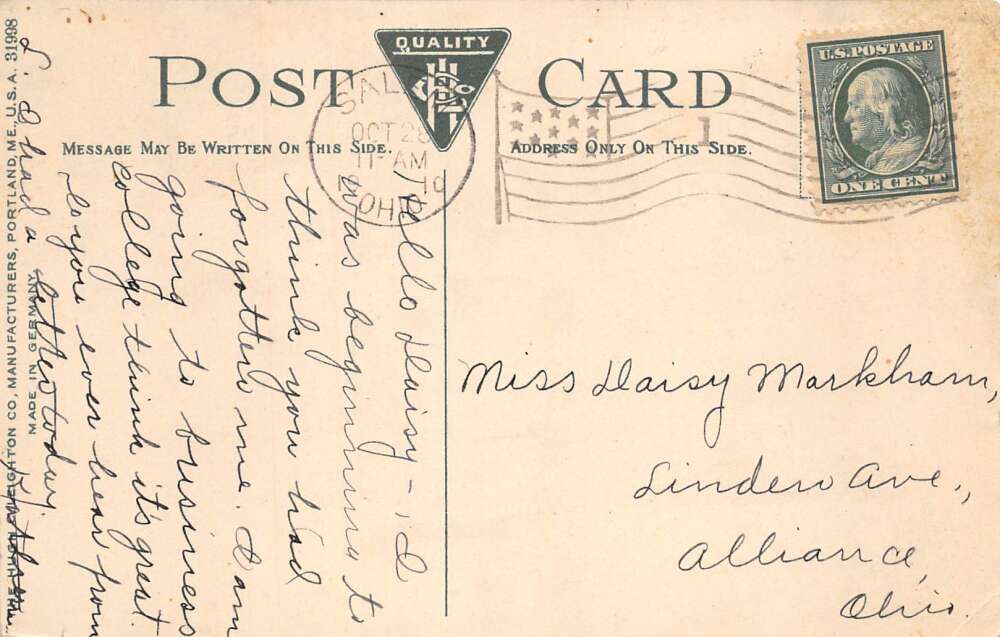 POST CARD
QUALITY
MESSAGE MAY BE WRITTEN ON THIS SIDE.
ADDRESS ONLY ON THIS SIDE.
U.S. POSTAGE
ONE CENT
OCT 28
11 AM
OHIO
1
THE HUGH C. LEIGHTON CO., MANUFACTURERS, PORTLAND, ME., U.S.A. 31998
MADE IN GERMANY
Hello Daisy - I
was beginning to
think you had
forgotten me. I am
going to business
college think it's great.
Do you ever hear from
I had a letter today.
Miss Daisy Markham,
Linden Ave.,
Alliance,
Ohio.